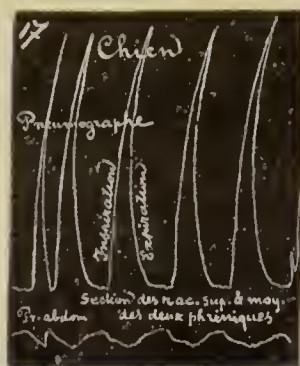 17
Chien
Pneumographe
Inspiration
Expiration
Section des rac. sup. & moy.
Pr. abdom des deux phréniques